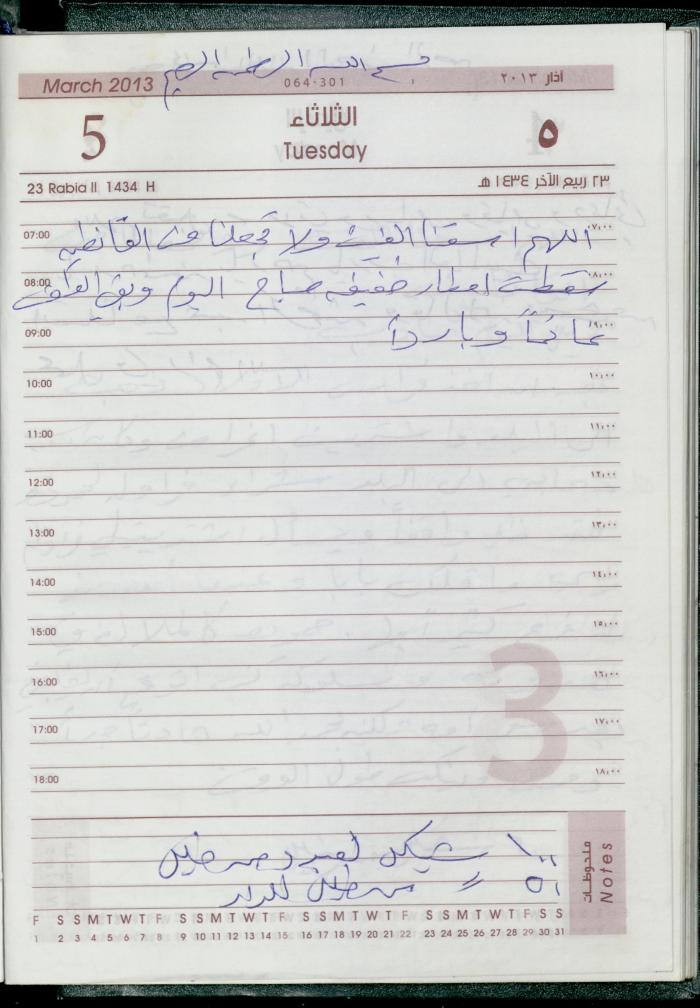 بسم الله الرحمن الرحيم
March 2013
064-301
آذار ٢٠١٣
5
الثلاثاء
Tuesday
٥
23 Rabia II 1434 H
٢٣ ربيع الآخر ١٤٣٤ هـ
07:00 اللهم اسقنا الغيث ولا تجعلنا من القانطين ٠٧،٠٠
08:00 سقطت امطار خفيفه صباح اليوم وبقي الطقس ٠٨،٠٠
09:00 غائماً وبارداً ٠٩،٠٠
10:00 ١٠،٠٠
11:00 ١١،٠٠
12:00 ١٢،٠٠
13:00 ١٣،٠٠
14:00 ١٤،٠٠
15:00 ١٥،٠٠
16:00 ١٦،٠٠
17:00 ١٧،٠٠
18:00 ١٨،٠٠
3
ملحوظات
Notes
١٠٠ شيكل
٥١ =
F S S M T W T F S S M T W T F S S M T W T F S S M T W T F S S
1 2 3 4 5 6 7 8 9 10 11 12 13 14 15 16 17 18 19 20 21 22 23 24 25 26 27 28 29 30 31